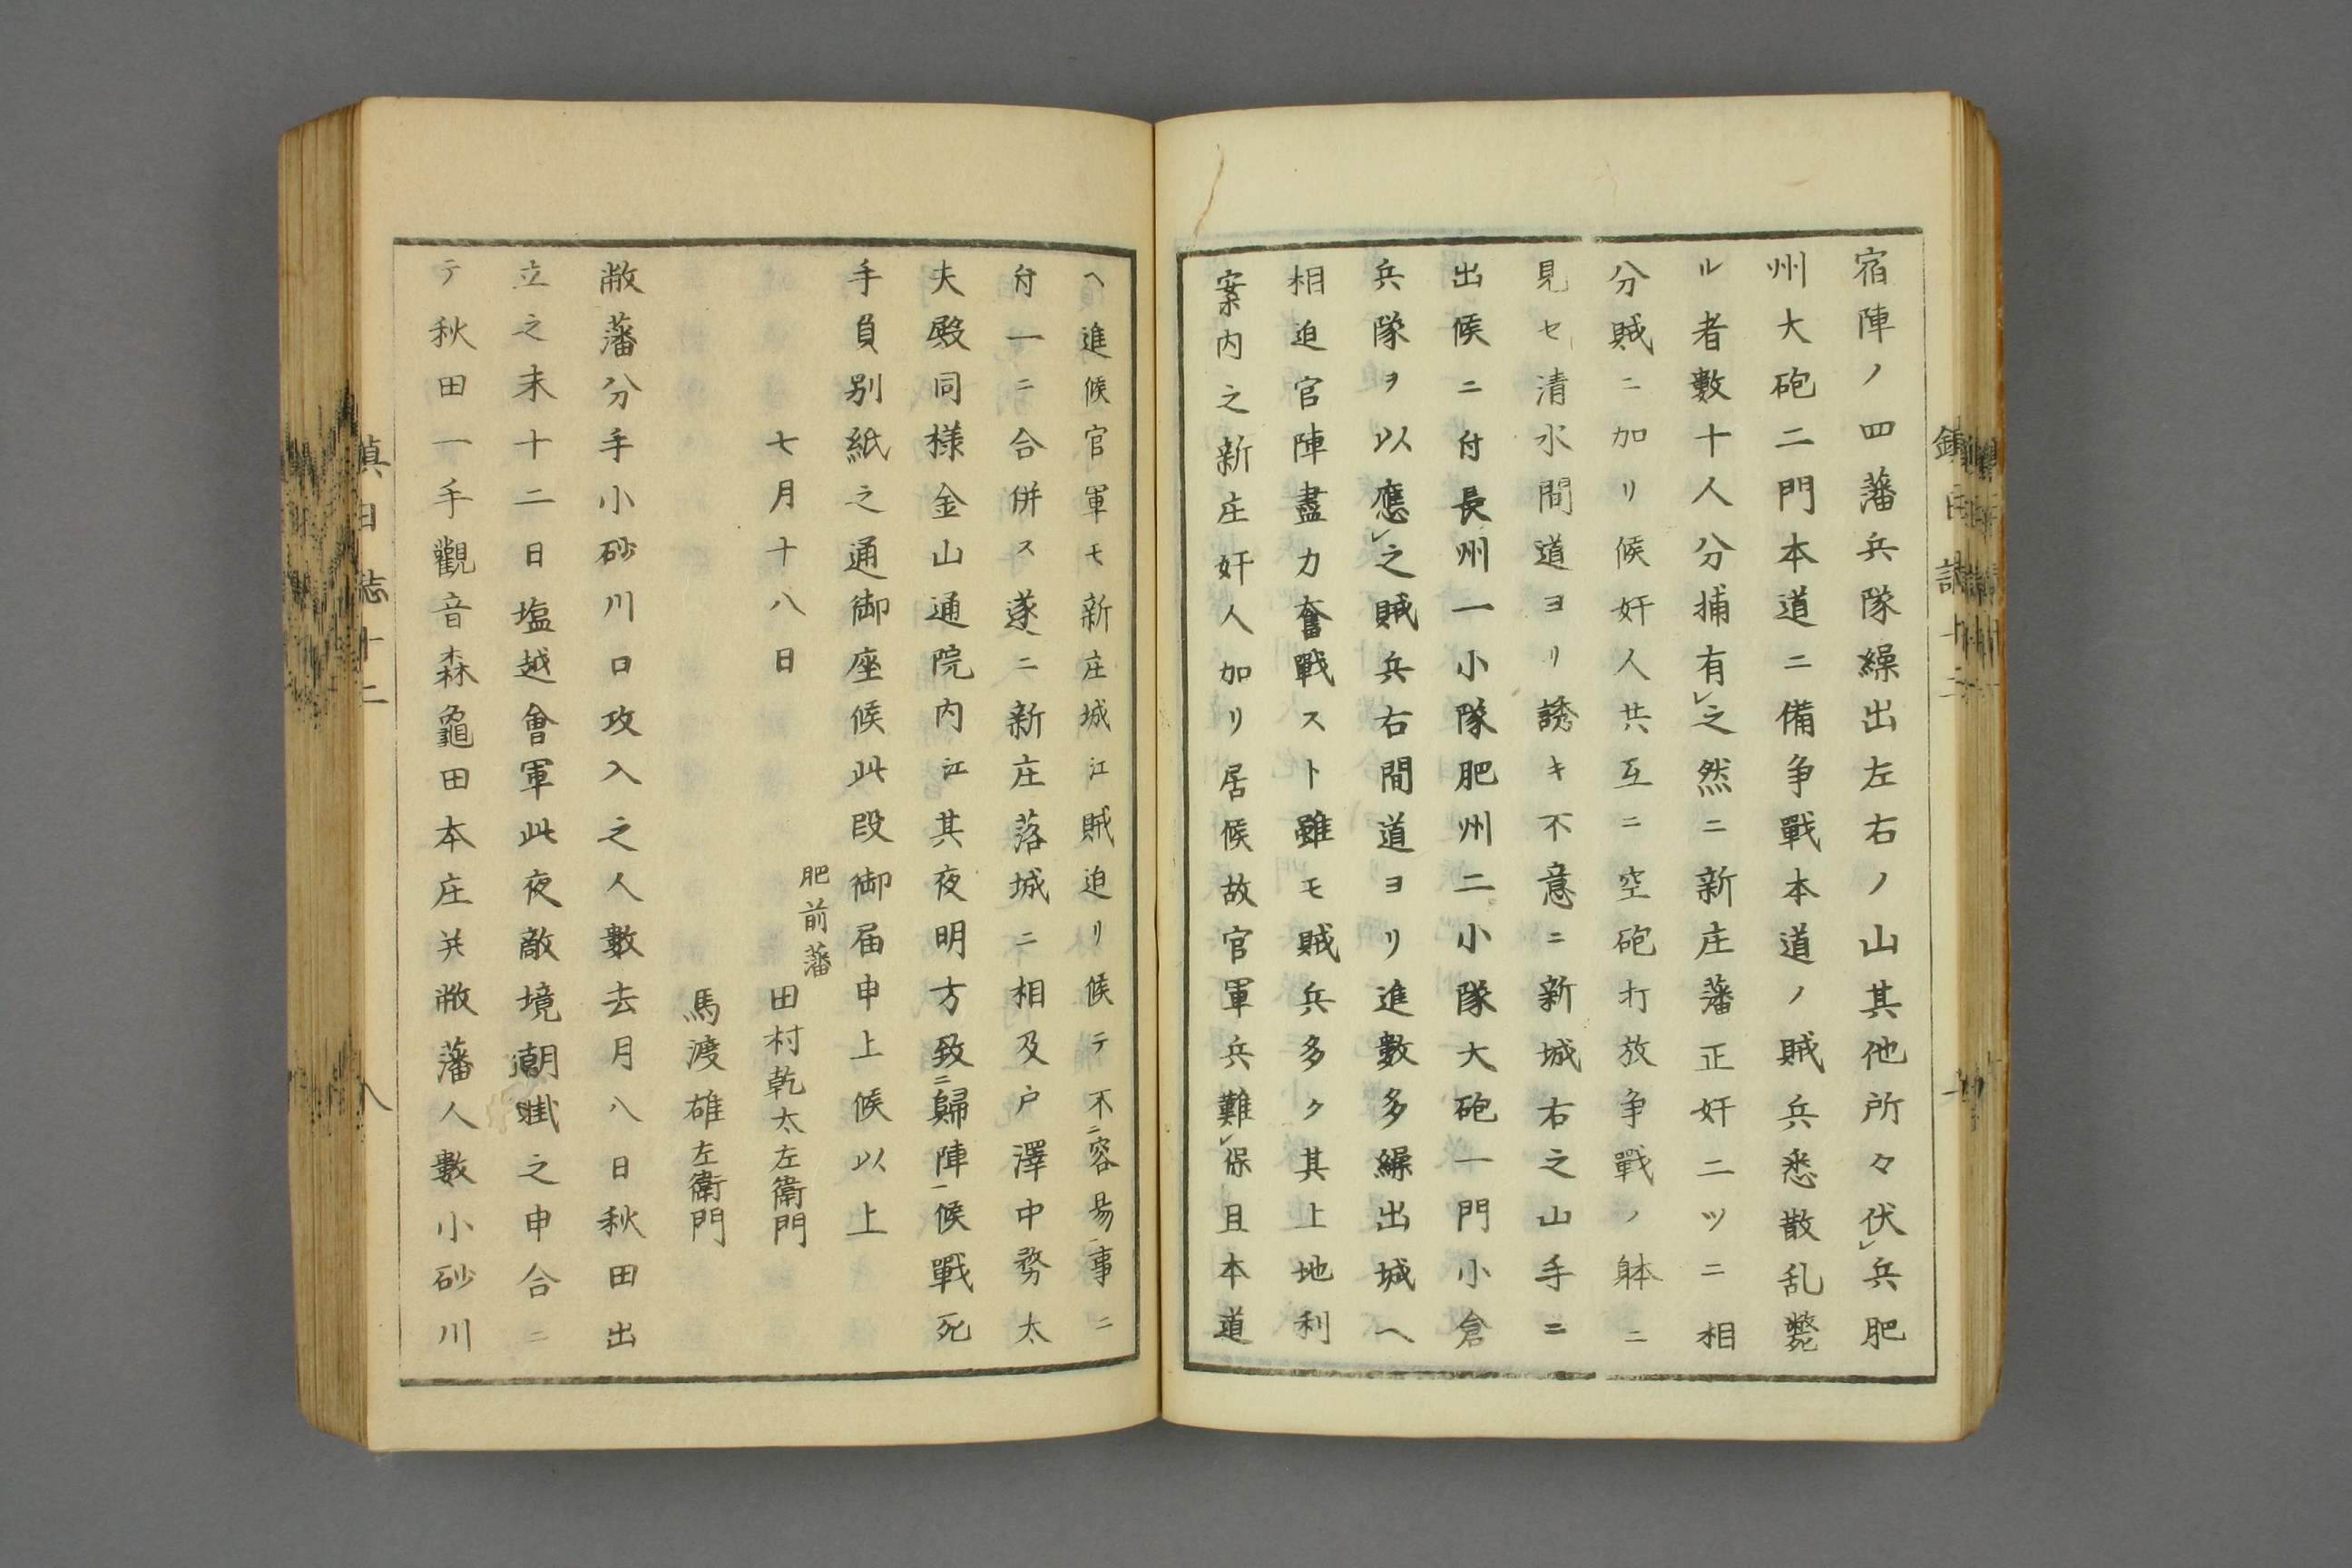 宿陣ノ四藩兵隊繰出左右ノ山其他所々伏レ兵肥
州大砲二門本道ニ備争戰本道ノ賊兵悉散乱斃
ル者數十人分捕有レ之然ニ新庄藩正奸二ツニ相
分賊ニ加リ候奸人共互ニ空砲打放争戰ノ躰ニ
見セ清水間道ヨリ誘キ不意ニ新城右之山手ニ
出候ニ付長州一小隊肥州二小隊大砲一門小倉
兵隊ヲ以應レ之賊兵右間道ヨリ進數多繰出城へ
相迫官陣盡力奮戰スト雖モ賊兵多ク其上地利
案内之新庄奸人加リ居候故官軍兵難レ保且本道
へ進候官軍モ新庄城江賊迫リ候テ不二容易一事ニ
付一ニ合併ス遂ニ新庄落城ニ相及戸澤中務太
夫殿同樣金山通院内江其夜明方致二歸陣一候戰死
手負別紙之通御座候此段御届申上候以上
七月十八日
肥前藩
田村乾太左衛門
馬渡雄左衛門
敝藩分手小砂川口攻入之人數去月八日秋田出
立之末十二日塩越會軍此夜敵境潮掛之申合ニ
テ秋田一手觀音森龜田本庄并敝藩人數小砂川
鎮日誌十二
八